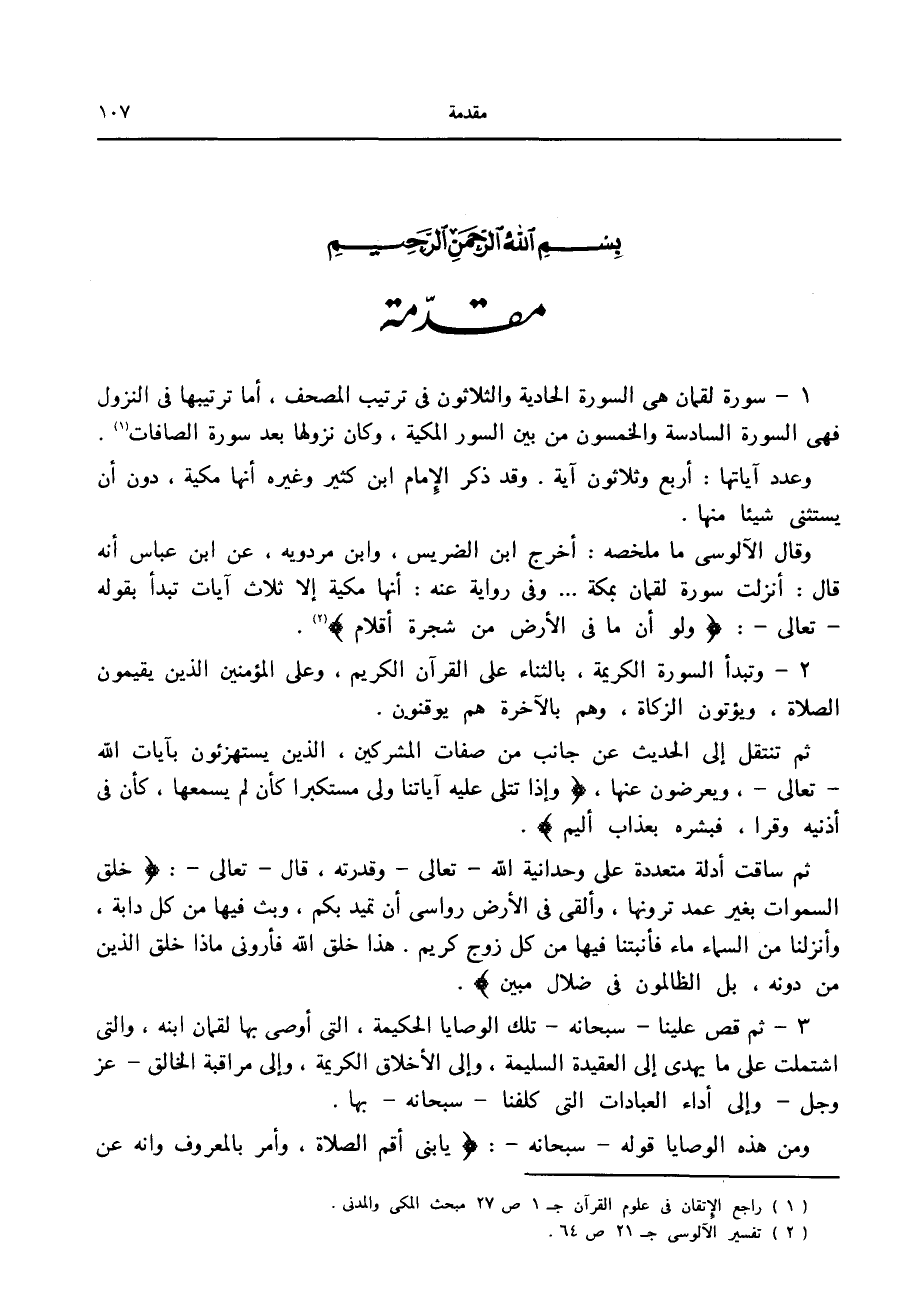 مقدمة ١٠٧
بسم الله الرحمن الرحيم
مقدّمة
١ – سورة لقمان هى السورة الحادية والثلاثون فى ترتيب المصحف ، أما ترتيبها فى النزول
فهى السورة السادسة والخمسون من بين السور المكية ، وكان نزولها بعد سورة الصافات(١) .
وعدد آياتها : أربع وثلاثون آية . وقد ذكر الإمام ابن كثير وغيره أنها مكية ، دون أن
يستثنى شيئا منها .
وقال الآلوسى ما ملخصه : أخرج ابن الضريس ، وابن مردويه ، عن ابن عباس أنه
قال : أنزلت سورة لقمان بمكة ... وفى رواية عنه : أنها مكية إلا ثلاث آيات تبدأ بقوله
– تعالى – : ﴿ ولو أن ما فى الأرض من شجرة أقلام ﴾(٢) .
٢ – وتبدأ السورة الكريمة ، بالثناء على القرآن الكريم ، وعلى المؤمنين الذين يقيمون
الصلاة ، ويؤتون الزكاة ، وهم بالآخرة هم يوقنون .
ثم تنتقل إلى الحديث عن جانب من صفات المشركين ، الذين يستهزئون بآيات الله
– تعالى – ، ويعرضون عنها ، ﴿ وإذا تتلى عليه آياتنا ولى مستكبرا كأن لم يسمعها ، كأن فى
أذنيه وقرا ، فبشره بعذاب أليم ﴾ .
ثم ساقت أدلة متعددة على وحدانية الله – تعالى – وقدرته ، قال – تعالى – : ﴿ خلق
السموات بغير عمد ترونها ، وألقى فى الأرض رواسى أن تميد بكم ، وبث فيها من كل دابة ،
وأنزلنا من السماء ماء فأنبتنا فيها من كل زوج كريم . هذا خلق الله فأرونى ماذا خلق الذين
من دونه ، بل الظالمون فى ضلال مبين ﴾ .
٣ – ثم قص علينا – سبحانه – تلك الوصايا الحكيمة ، التى أوصى بها لقمان ابنه ، والتى
اشتملت على ما يهدى إلى العقيدة السليمة ، وإلى الأخلاق الكريمة ، وإلى مراقبة الخالق – عز
وجل – وإلى أداء العبادات التى كلفنا – سبحانه – بها .
ومن هذه الوصايا قوله – سبحانه – : ﴿ يابنى أقم الصلاة ، وأمر بالمعروف وانه عن
( ١ ) راجع الإتقان فى علوم القرآن جـ ١ ص ٢٧ مبحث المكى والمدنى .
( ٢ ) تفسير الآلوسى جـ ٢١ ص ٦٤ .